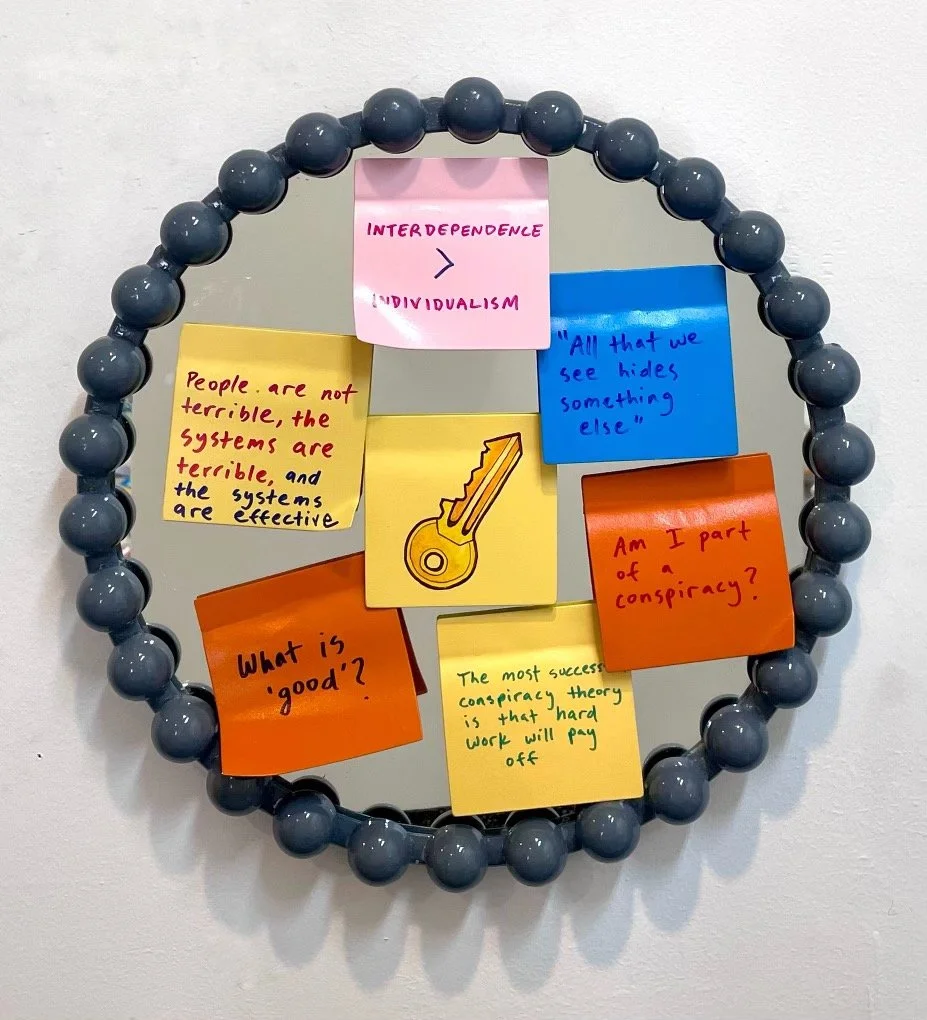 INTERDEPENDENCE
>
INDIVIDUALISM
"All that we
see hides
something
else"
People are not
terrible, the
systems are
terrible, and
the systems
are effective
Am I part
of a
conspiracy?
What is
'good'?
The most success
conspiracy theory
is that hard
work will pay
off